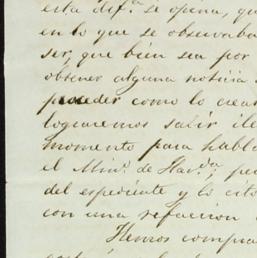 esta dif.ª se opina, qu
en lo que se observaba
ser, que bien sea por
obtener alguna noticia
proceder como lo crea
lograremos salir ile
momento para habla
el Min.º de Hac.da; pe
del espediente y lo cito
con una refaccion
Hemos compra